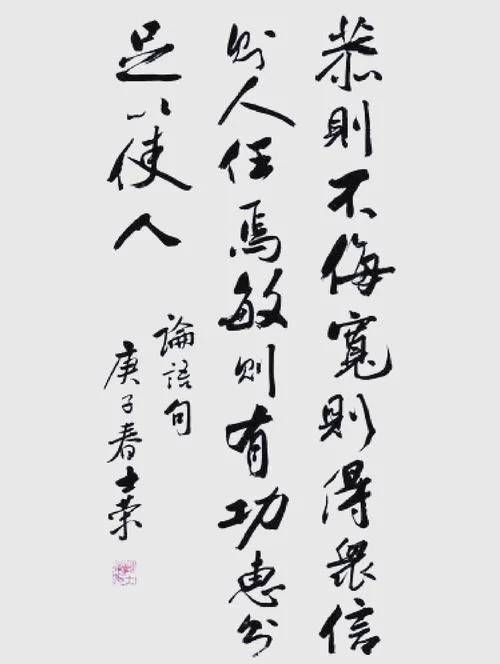 恭則不侮寬則得衆信
則人任焉敏則有功惠則
足以使人
論語句
庚子春士榮